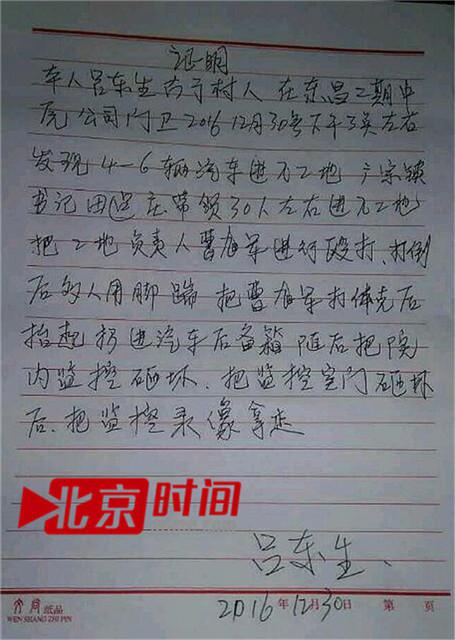 证明
本人吕东生 高寺村人 在东昌二期中
元公司门卫2016 12月30号下午3点左右
发现4-6辆汽车进入工地 广宗镇
书记田 庄带领30人左右进入工地
把工地负责人曹 军进行殴打、打倒
后多人用脚踹 把曹 军打休克后
抬起扔进汽车后备箱 随后把院
内监控砸坏、把监控室门砸坏
后、把监控录像拿走
北京时间
吕东生、
2016年12月30日 第 页
纸品
WEN SHANG ZHI PIN